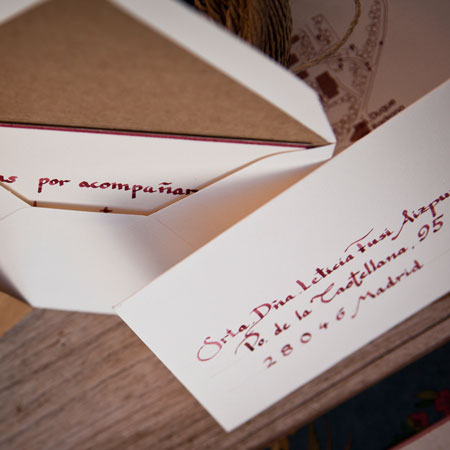 por acompañar
Srta. Dña. Leticia Fusi Aizpu
Po. de la Castellana, 95
28046 Madrid